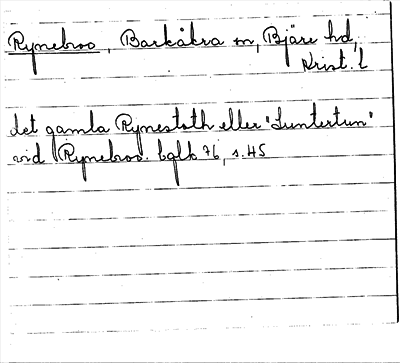 Rynebroo, Barkåkra sn, Bjäre hd,
Krist. l
det gamla Rynestoth eller "Luntertun"
vid Rynebroo. bglk 76, s. 45